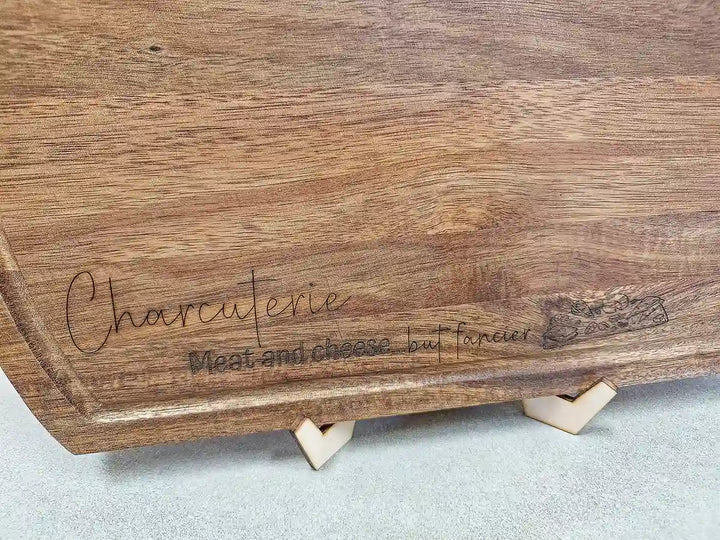 Charcuterie
Meat and cheese...but fancier